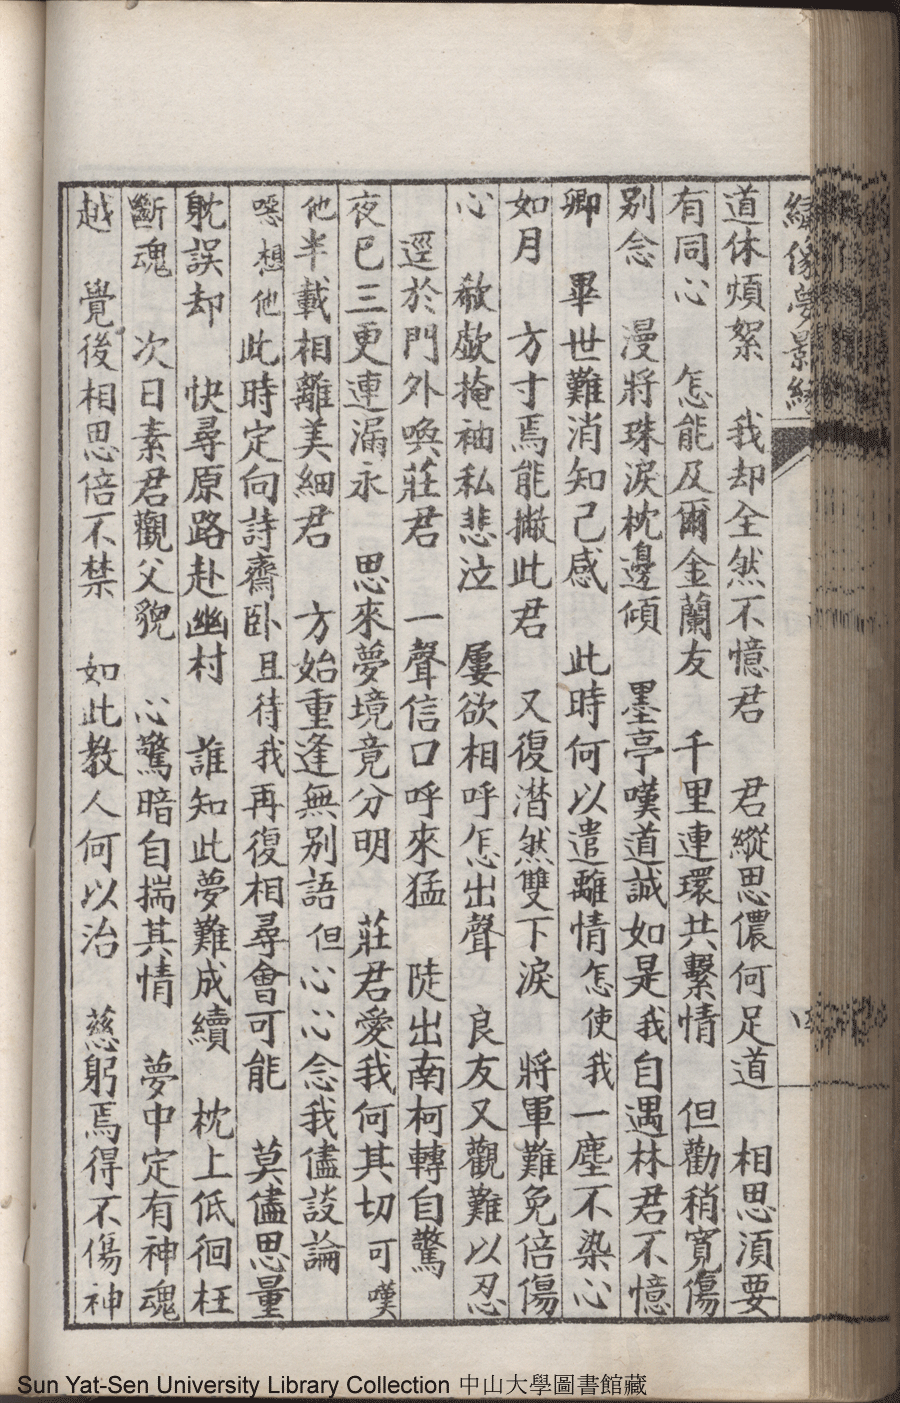 繡像夢影緣
道休煩絮　我却全然不憶君　君縱思儂何足道　相思須要
有同心　怎能及爾金蘭友　千里連環共繫情　但勸稍寬傷
別念　漫將珠淚枕邊傾　墨亭嘆道誠如是　我自遇林君不憶
卿　畢世難消知己感　此時何以遣離情　怎使我一塵不染心
如月　方寸焉能撇此君　又復潸然雙下淚　將軍難免倍傷
心　欷歔掩袖私悲泣　屢欲相呼怎出聲　良友又觀難以忍
逕於門外喚莊君　一聲信口呼來猛　陡出南柯轉自驚
夜已三更連漏永　思來夢境竟分明　莊君愛我何其切　可嘆
他半載相離美細君　方始重逢無別語　但心心念我儘談論
噫想他此時定向詩齋卧　且待我再復相尋會可能　莫儘思量
躭誤却　快尋原路赴幽村　誰知此夢難成續　枕上低徊枉
斷魂　次日素君觀父貌　心驚暗自揣其情　夢中定有神魂
越　覺後相思倍不禁　如此教人何以治　慈躬焉得不傷神
Sun Yat-Sen University Library Collection 中山大學圖書館藏